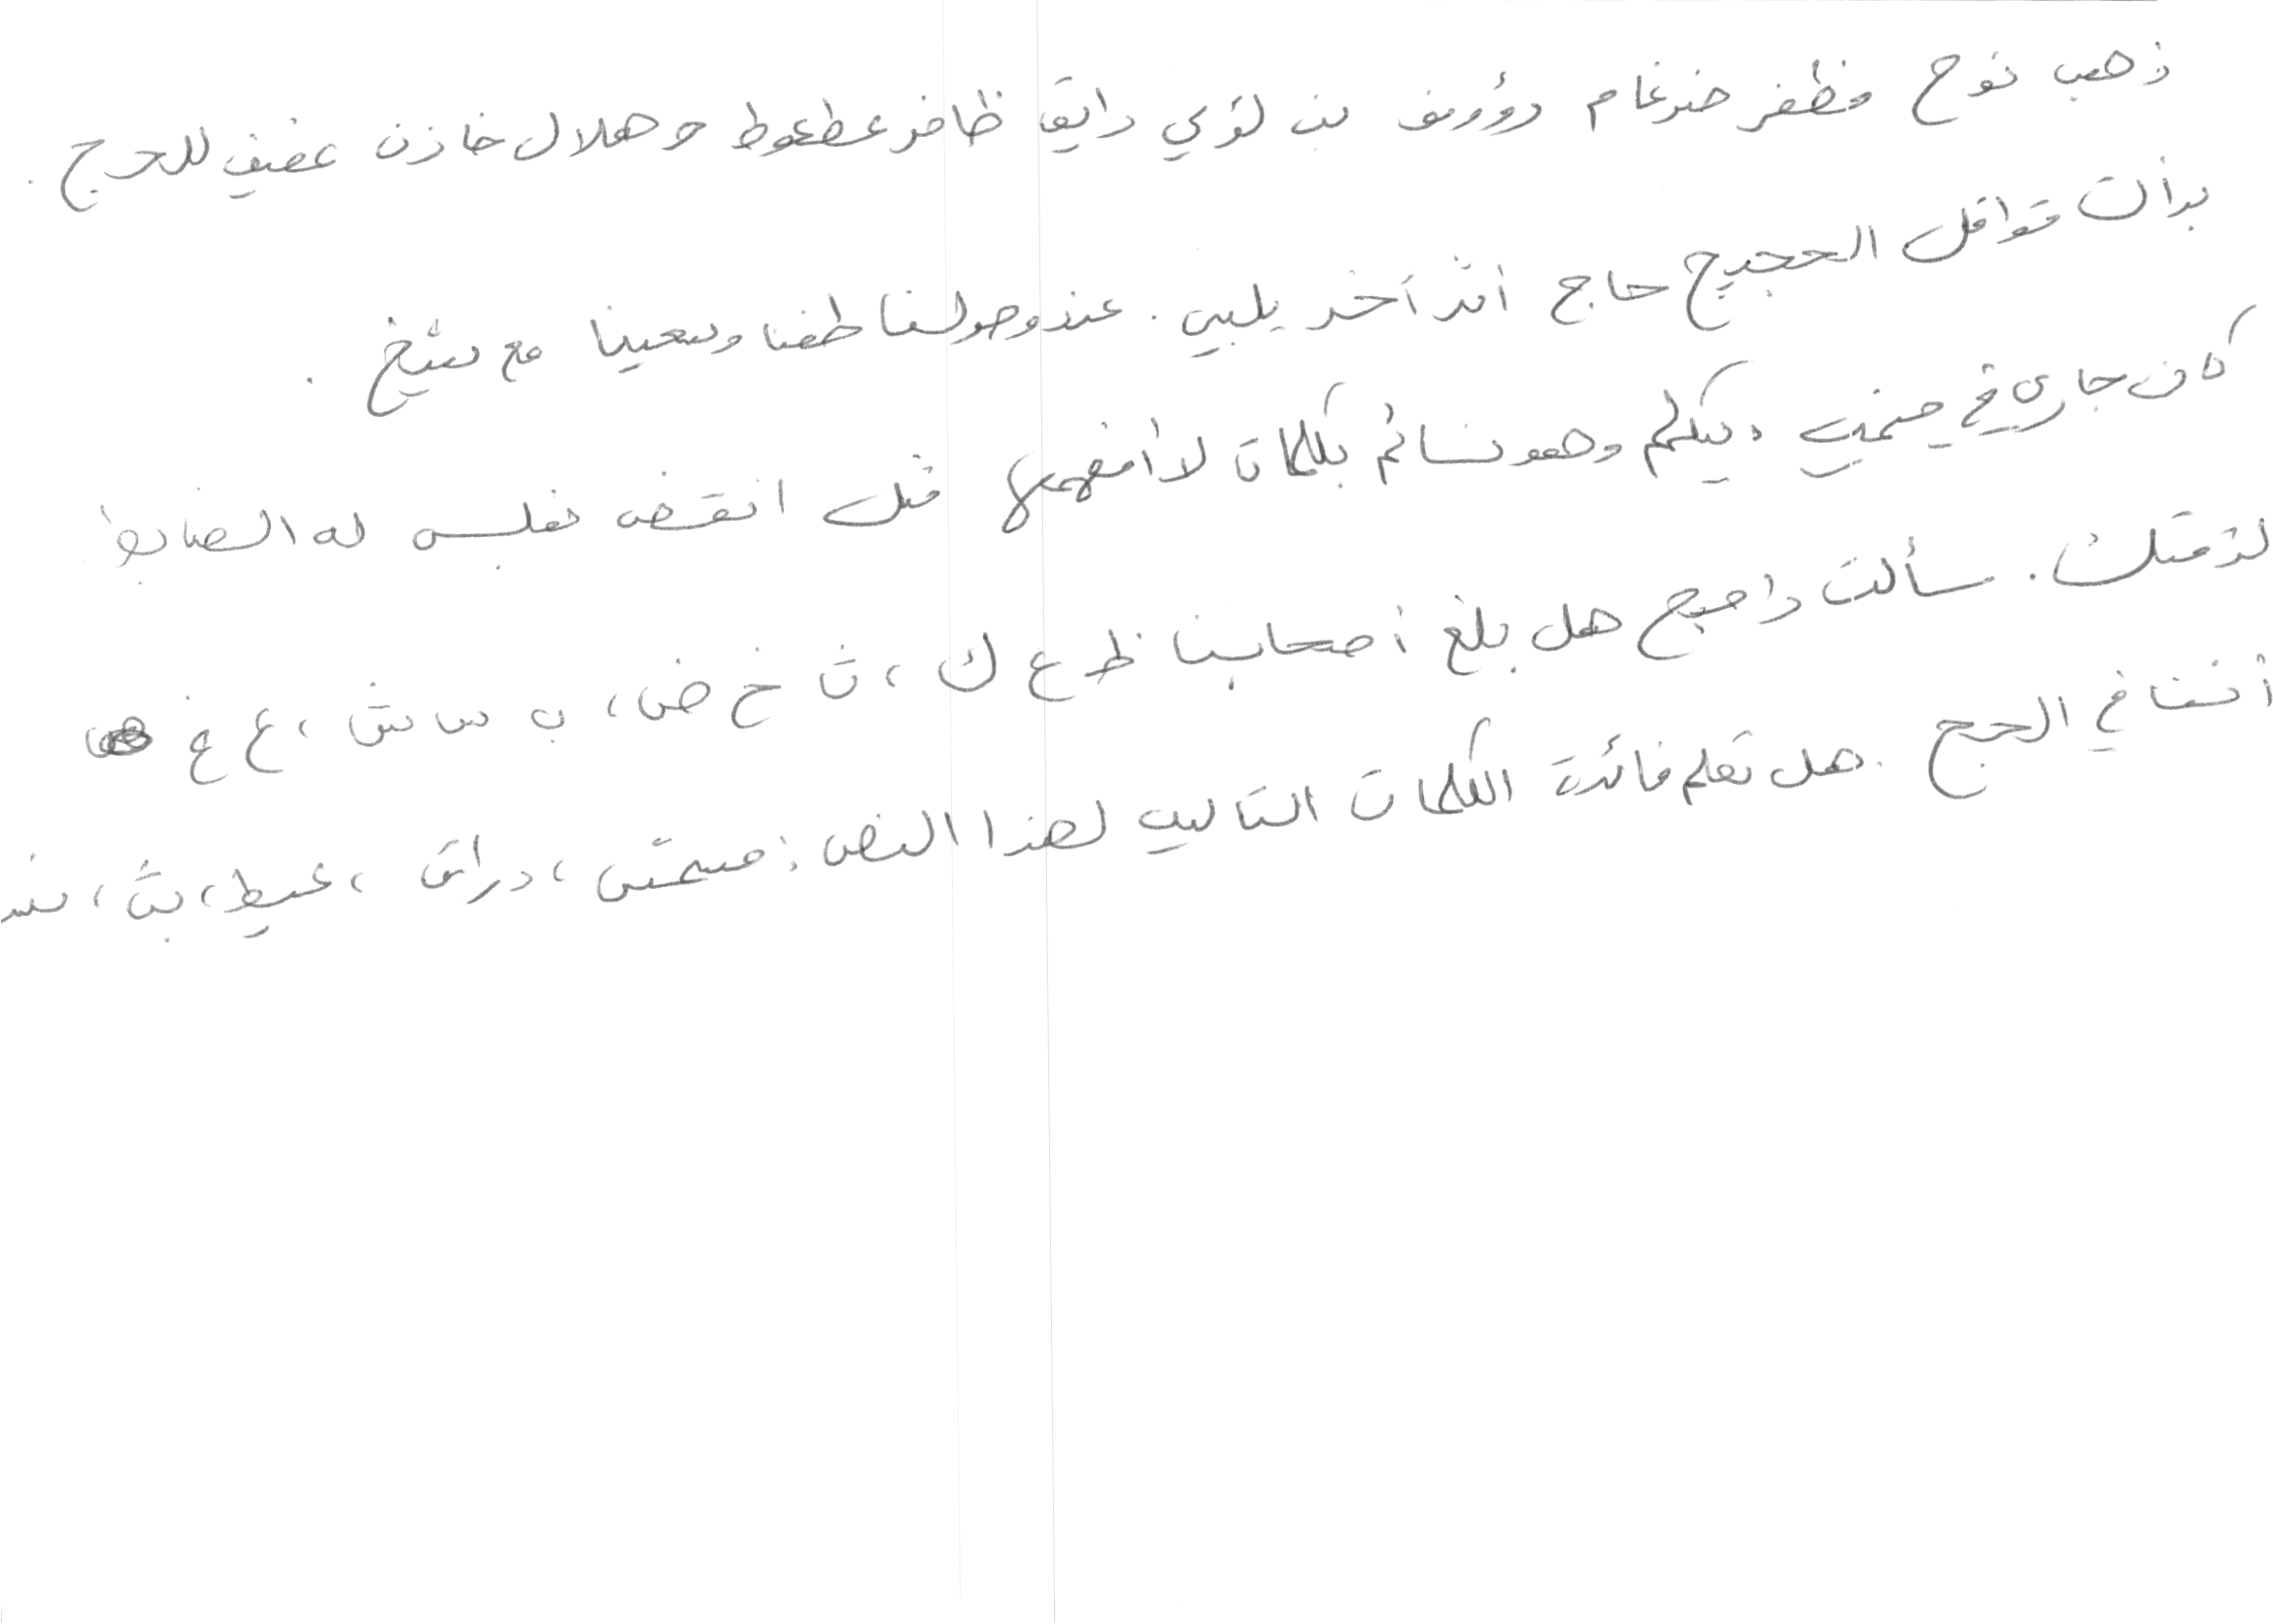 ذهب نوح مظفر ضرغام رؤوف بن لؤي رايق ظافر عطعوط و هلال خازن عفيف للحج .
بدأت قوافل الحجيج حاج أثر آخر يلبي . عند وصولنا طفنا وسعينا مع شيخ .
كان جاري في مخيمي يتكلم وهو نائم بكلمات لا أفهمها مثل انقض نفلبس له الضابط
لزمتك . سألت راجح هل بلغ أصحابنا ظ ع ك ، ث خ ض ، ب س ش ، ع غ هـ
أننا في الحج . هل تعلم فائدة الكلمات التالية لهذا النص : مسمش ، دراق ، غيط ، بث ،